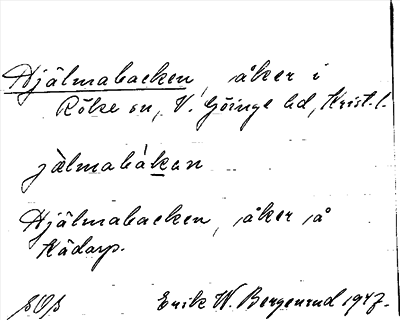 Hjälmabacken, åker i
Röke sn, V. Göinge hd, Krist. l.
jälmabákan
Hjälmabacken, åker å
Kädarp.
Erik W. Bergenrud 1947.